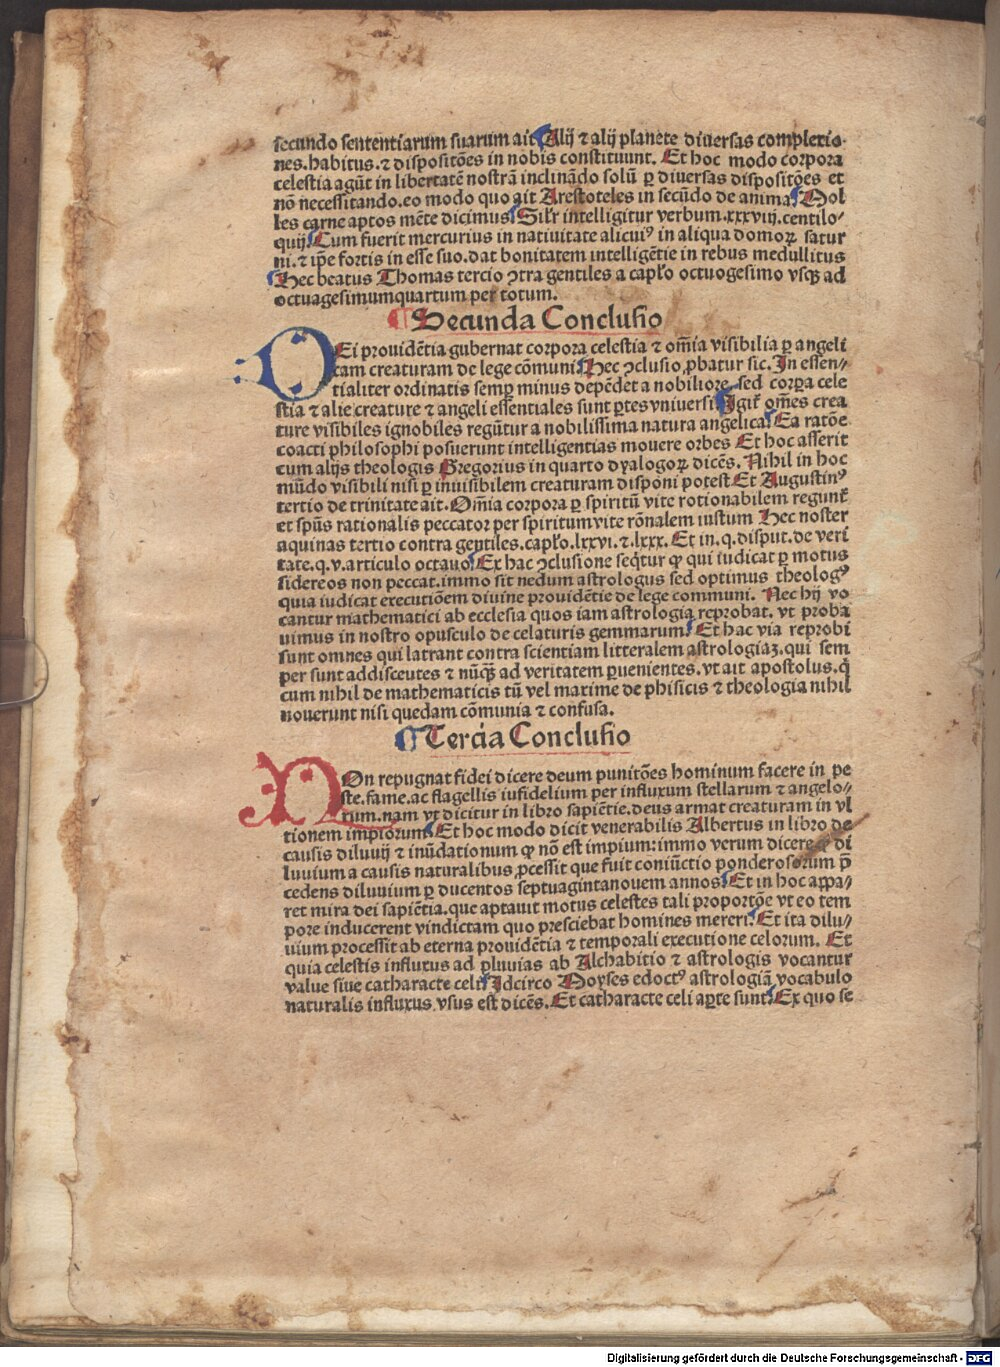 secundo sententiarum suarum ait Alij ⁊ alij planete diuersas complexio-
nes.habitus.⁊ dispositōes in nobis constituunt. Et hoc modo corpora
celestia agūt in libertatē nostrā inclināndo solū ꝑ diuersas dispositōes et
nō necessitando.eo modo quo ait Arestoteles in secūdo de anima Mol
les carne aptos mēte dicimus Silr intelligitur verbum.xxxviij.centilo-
quij Cum fuerit mercurius in natiuitate alicuiꝰ in aliqua domoꝝ satur
ni.⁊ ip̄e fortis in esse suo.dat bonitatem intelligētie in rebus medullitus
Hec beatus Thomas tercio ɔtra gentiles a capło octuogesimo vsqꝫ ad
octuagesimumquartum per totum.
¶ Secunda Conclusio
DEi prouidētia gubernat corpora celestia ⁊ om̄ia visibilia ꝑ angeli
cam creaturam de lege cōmuni Hec ɔclusio ꝓbatur sic. In essen-
tialiter ordinatis semꝑ minus depēdet a nobiliore.sed corꝑa cele
stia ⁊ alie creature ⁊ angeli essentiales sunt ꝑtes vniuersi Igit̄ om̄es crea
ture visibiles ignobiles regūtur a nobilissima natura angelica Ea ratōe
coacti philosophi posuerunt intelligentias mouere orbes Et hoc asserit
cum alijs theologis Gregorius in quarto dyalogoꝝ dicēs. Nihil in hoc
mūdo visibili nisi ꝑ inuisibilem creaturam disponi potest Et Augustinꝰ
tertio de trinitate ait. Om̄ia corpora ꝑ spiritū vite rotionabilem regunt̄
et spūs rationalis peccator per spiritum vite rōnalem iustum Hec noster
aquinas tertio contra gentiles.capło.lxxvi.⁊.lxxx. Et in.q.disput.de veri
tate.q.v.articulo octauo Ex hac ɔclusione seq̄tur ꝙ qui iudicat ꝑ motus
sidereos non peccat.immo sit nedum astrologus sed optimus theologꝰ
quia iudicat executiōem diuine prouidētie de lege communi. Nec hij vo
cantur mathematici ab ecclesia quos iam astrologia reprobat. vt proba
uimus in nostro opusculo de celaturis gemmarum Et hac via reprobi
sunt omnes qui latrant contra scientiam litteralem astrologiaꝫ.qui sem
per sunt addisceutes ⁊ nūqꝫ ad veritatem ꝑuenientes.vt ait apostolus.q̄
cum nihil de mathematicis tū vel maxime de phisicis ⁊ theologia nihil
nouerunt nisi quedam cōmunia ⁊ confusa.
¶ Tercia Conclusio
NOn repugnat fidei dicere deum punitōes hominum facere in pe
ste.fame.ac flagellis iufidelium per influxum stellarum ⁊ angelo-
rum.nam vt dicitur in libro sapiētie.deus armat creaturam in vl
tionem impiorum Et hoc modo dicit venerabilis Albertus in libro de
causis diluuij ⁊ inūdationum ꝙ nō est impium: immo verum dicere ꝙ di
luuium a causis naturalibus ꝓcessit que fuit coniūctio ponderosorum p̄
cedens diluuium ꝑ ducentos septuagintanouem annos Et in hoc apꝑa-
ret mira dei sapiētia.que aptauit motus celestes tali proportōe vt eo tem
pore inducerent vindictam quo presciebat homines mereri Et ita dilu-
uium processit ab eterna prouidētia ⁊ temporali executione celorum. Et
quia celestis influxus ad pluuias ab Alchabitio ⁊ astrologis vocantur
value siue catharacte celi Idcirco Moyses edoctꝰ astrologiā vocabulo
naturalis influxus vsus est dicēs. Et catharacte celi aꝑte sunt Ex quo se
Digitalisierung gefördert durch die Deutsche Forschungsgemeinschaft - DFG